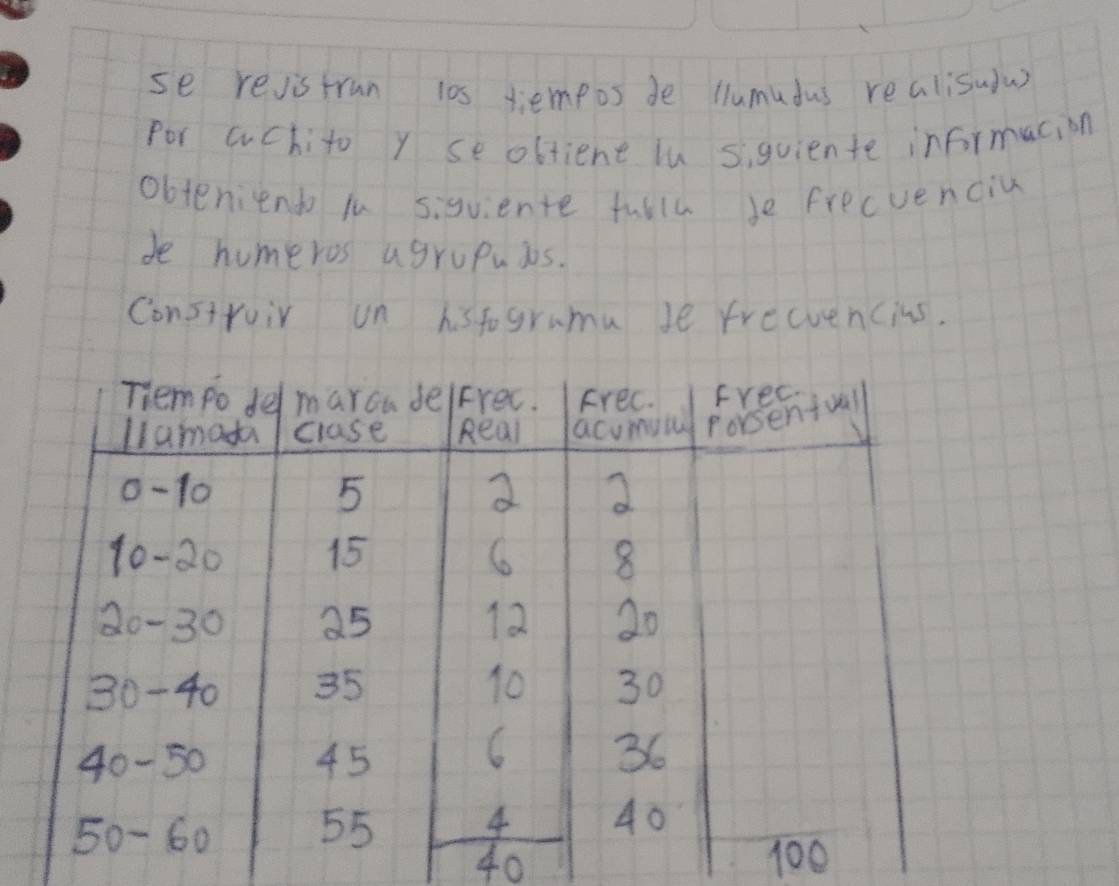 se rejistran los tiempos de llamadas realisadas
Por cuchito y se obtiene la siguiente informacion
Obteniendo la siguiente tabla de frecuencia
de numeros agrupados.
Construir un histograma de frecuencias.
Tiempo de marca de Frec. Frec. Frec.
llamada clase Real acumulu Porsentual
0-10 5 2 2
10-20 15 6 8
20-30 25 12 20
30-40 35 10 30
40-50 45 6 36
50-60 55 4 40
40 100